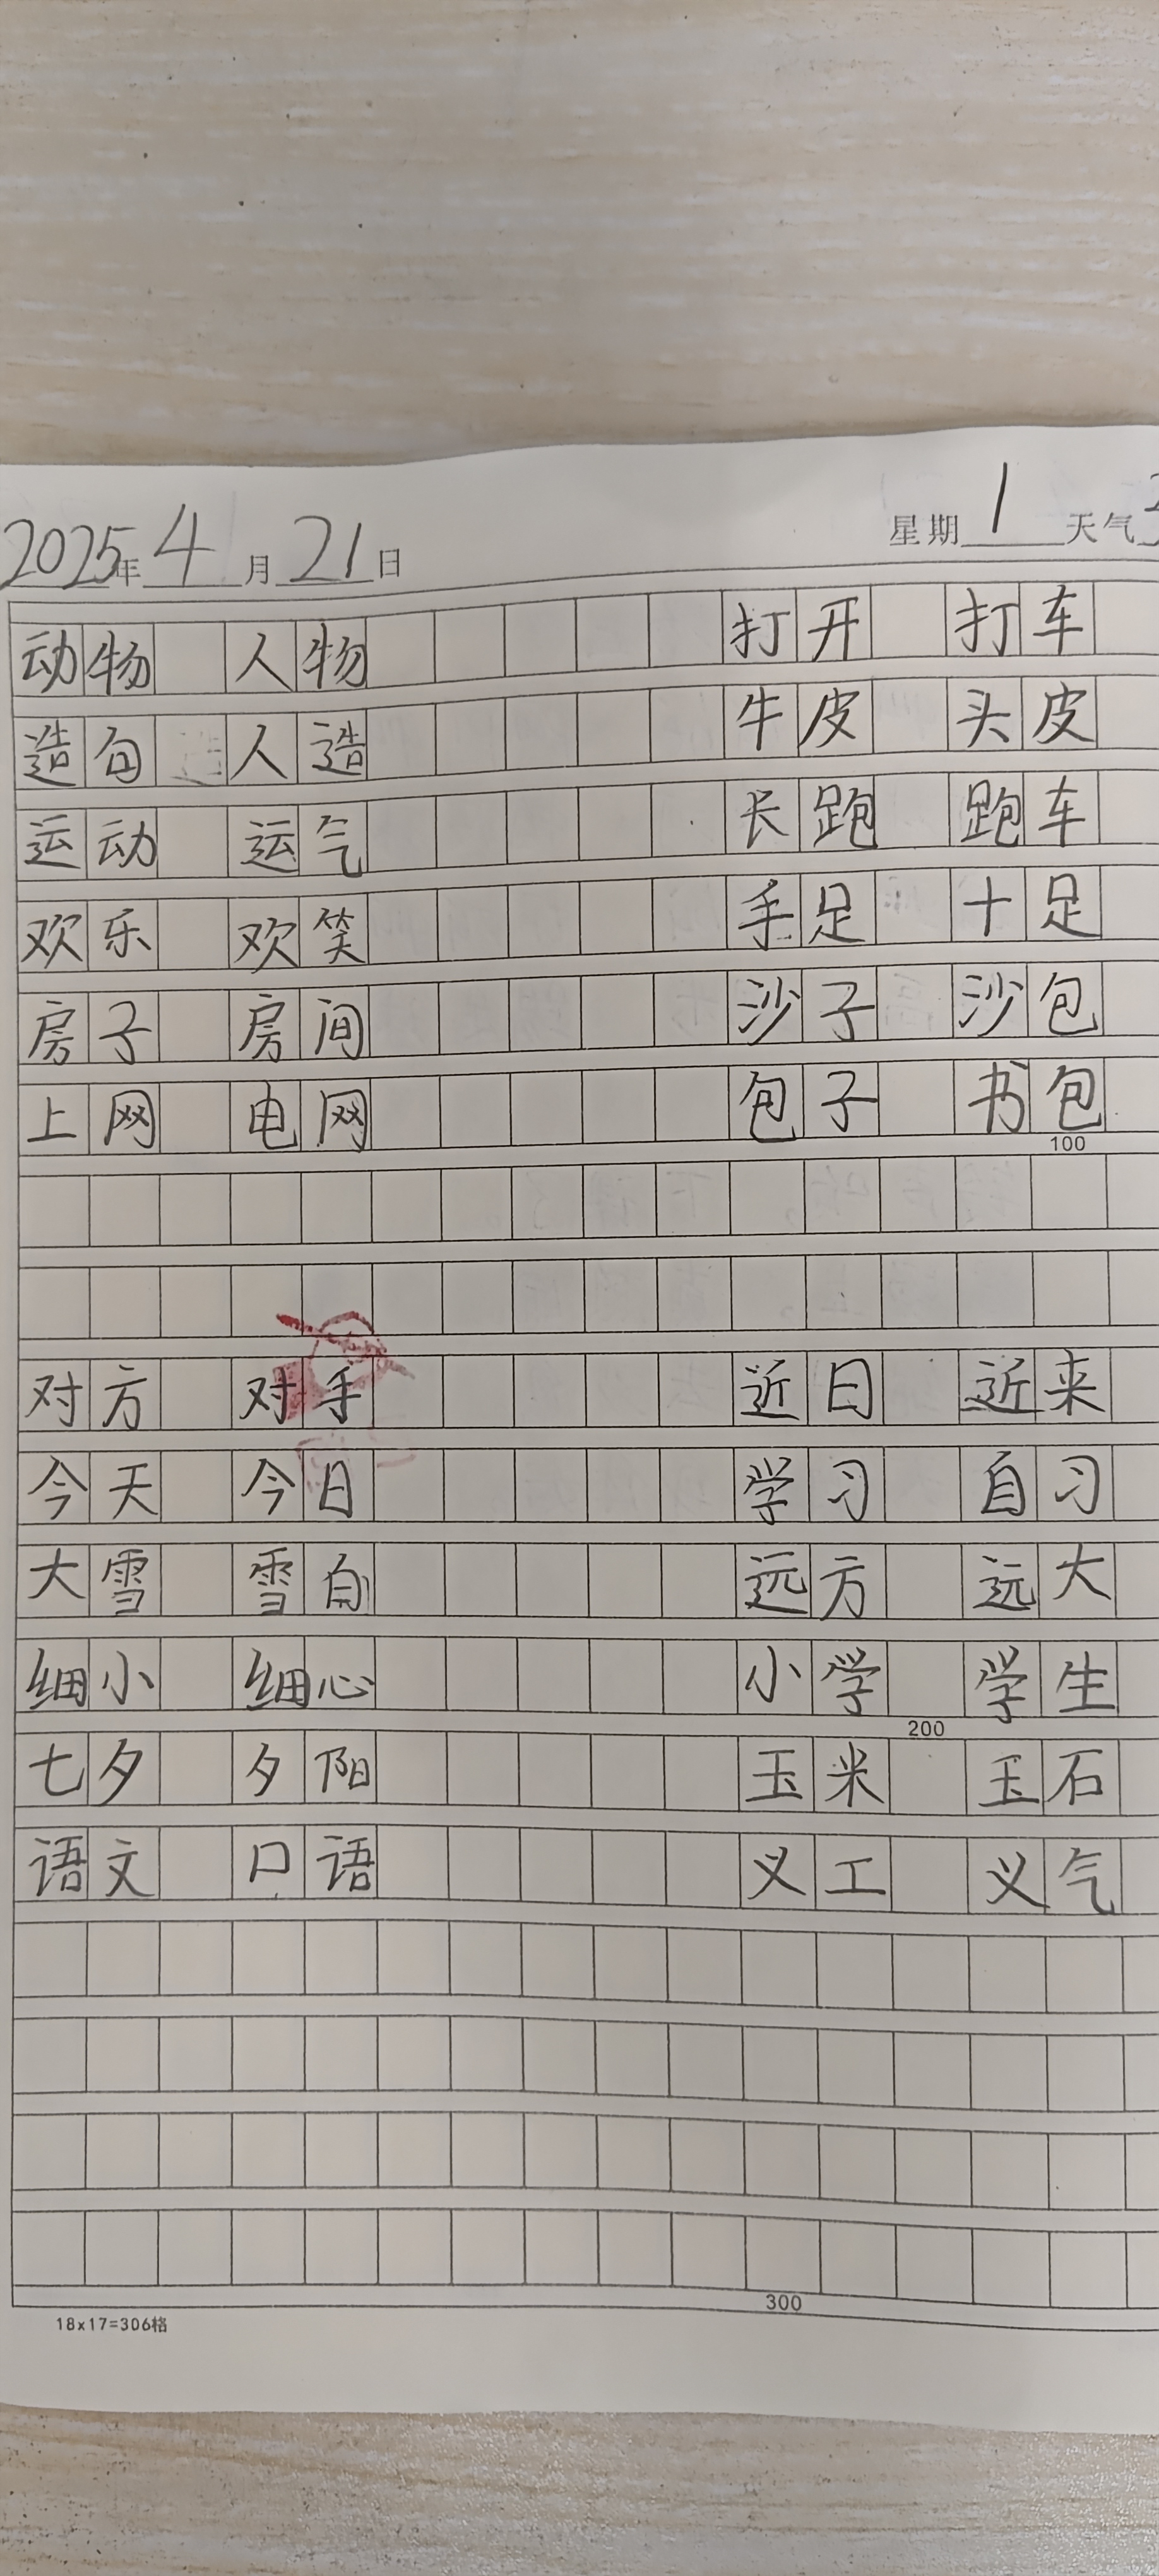 2025年4月21日 星期1 天气
动物 人物 打开 打车
造句 人造 牛皮 头皮
运动 运气 长跑 跑车
欢乐 欢笑 手足 十足
房子 房间 沙子 沙包
上网 电网 包子 书包
100
对方 对手 近日 近来
今天 今日 学习 自习
大雪 雪白 远方 远大
细小 细心 小学 学生
200
七夕 夕阳 玉米 玉石
语文 口语 义工 义气
300
18x17=306格